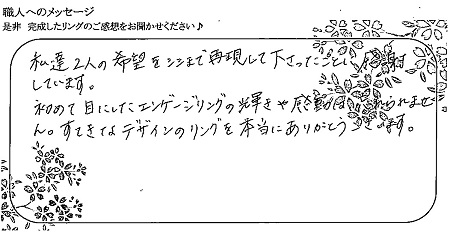 職人へのメッセージ
是非 完成したリングのご感想をお聞かせください♪
私達2人の希望を まで再現して下さったこと 感謝
しています。
初めて目にしたエンゲージリングの輝きや感動は られませ
ん。すてきなデザインのリングを本当にありがとうございます。